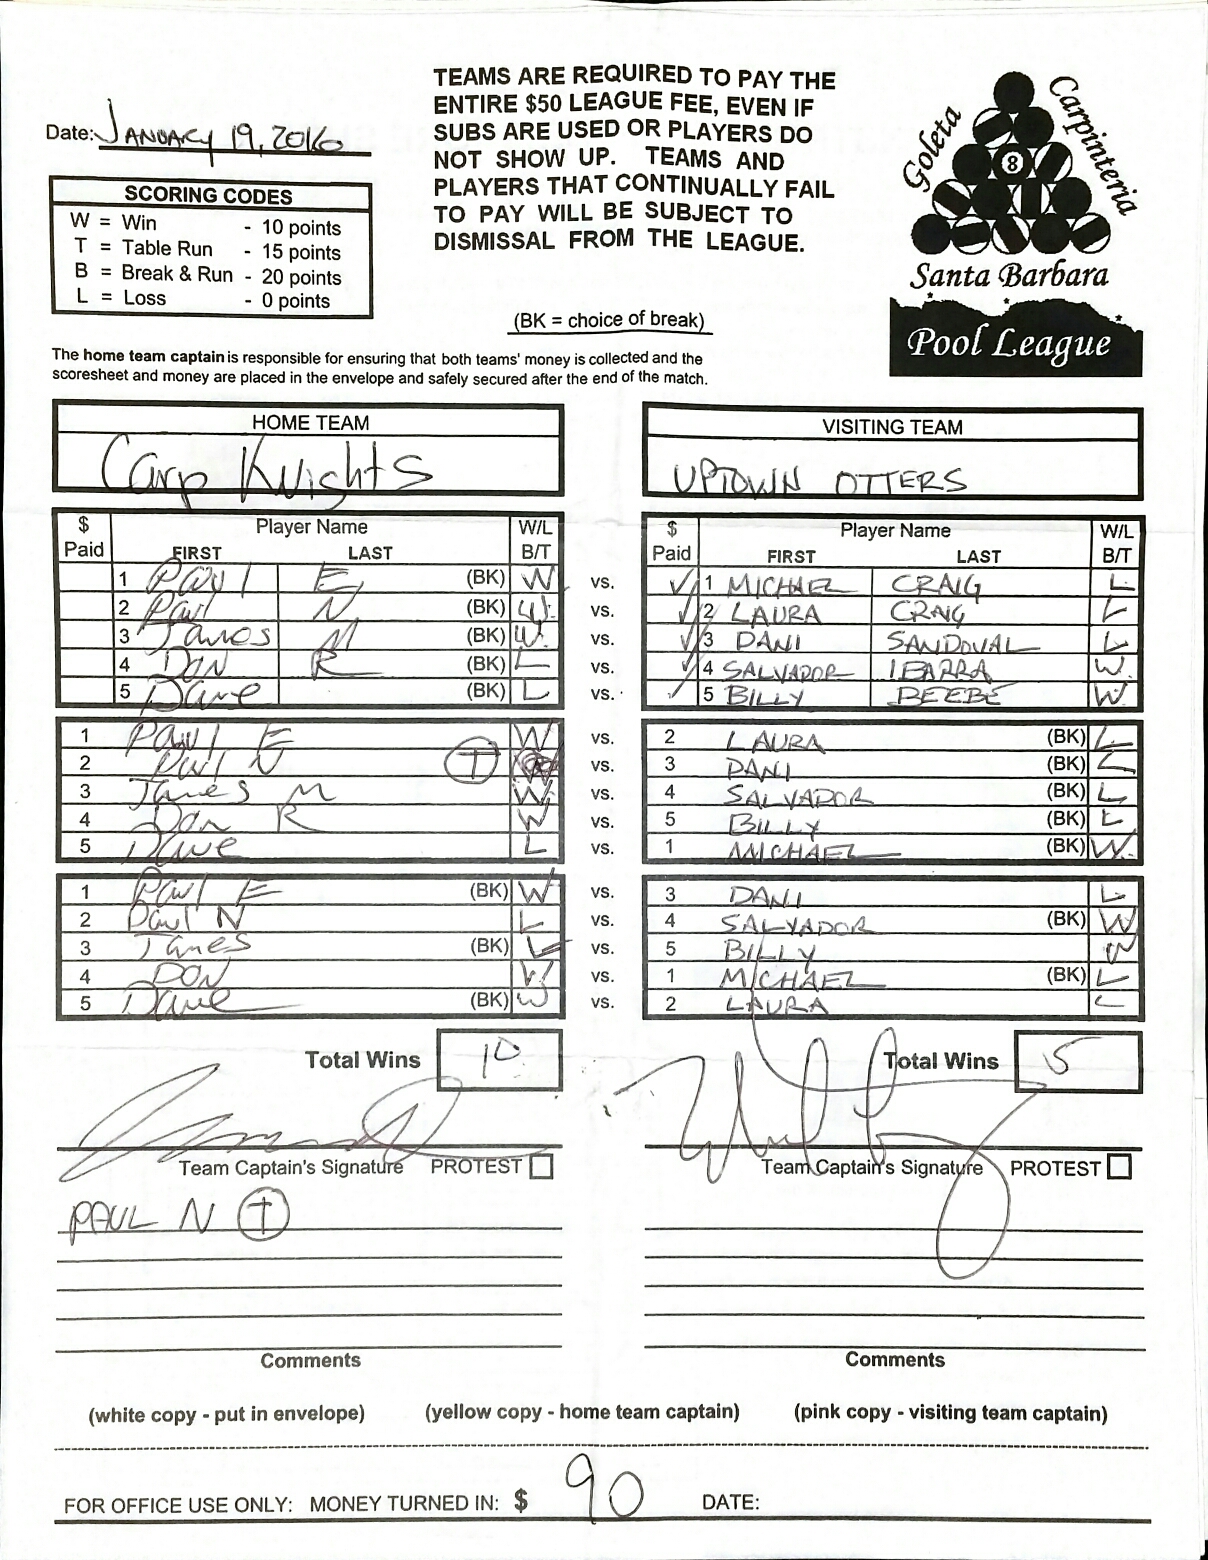 TEAMS ARE REQUIRED TO PAY THE
ENTIRE $50 LEAGUE FEE, EVEN IF
SUBS ARE USED OR PLAYERS DO
NOT SHOW UP. TEAMS AND
PLAYERS THAT CONTINUALLY FAIL
TO PAY WILL BE SUBJECT TO
DISMISSAL FROM THE LEAGUE.
Date: JANUARY 19, 2016
SCORING CODES
W = Win - 10 points
T = Table Run - 15 points
B = Break & Run - 20 points
L = Loss - 0 points
Goleta
Carpinteria
8
Santa Barbara
Pool League
(BK = choice of break)
The home team captain is responsible for ensuring that both teams' money is collected and the
scoresheet and money are placed in the envelope and safely secured after the end of the match.
HOME TEAM VISITING TEAM
Carp Knights UPTOWN OTTERS
$ Paid Player Name FIRST LAST W/L B/T $ Paid Player Name FIRST LAST W/L B/T
1 Paul E (BK) W vs. ✓ 1 MICHAEL CRAIG L
2 Paul N (BK) W vs. ✓ 2 LAURA CRAIG L
3 James M (BK) W vs. ✓ 3 DANI SANDOVAL L
4 DON R (BK) L vs. ✓ 4 SALVADOR IBARRA W
5 Dave (BK) L vs. ✓ 5 BILLY BEEBE W
1 Paul E W vs. 2 LAURA (BK) L
2 Paul N T vs. 3 DANI (BK) L
3 James M W vs. 4 SALVADOR (BK) L
4 Don R W vs. 5 BILLY (BK) L
5 Dave L vs. 1 MICHAEL (BK) W
1 Paul E (BK) W vs. 3 DANI L
2 Paul N L vs. 4 SALVADOR (BK) W
3 James (BK) L vs. 5 BILLY W
4 DON W vs. 1 MICHAEL (BK) L
5 Dave (BK) W vs. 2 LAURA L
Total Wins 10 Total Wins 5
Team Captain's Signature PROTEST Team Captain's Signature PROTEST
PAUL N T
Comments Comments
(white copy - put in envelope) (yellow copy - home team captain) (pink copy - visiting team captain)
FOR OFFICE USE ONLY: MONEY TURNED IN: $ 90 DATE: